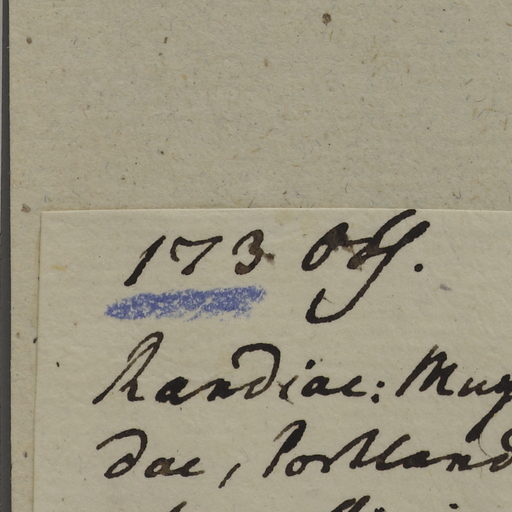 173 Off.
Randiae: Muy
dae, Portland